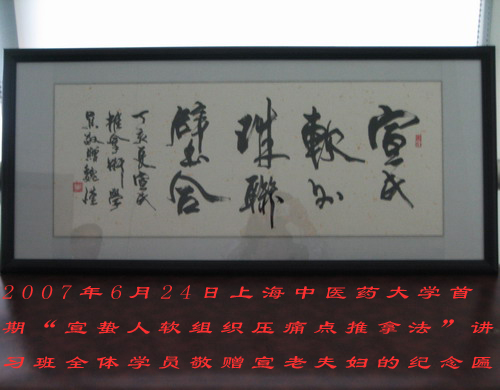 宣氏
軟外
珠聯
璧合
丁亥夏宣氏
推拿學
員敬贈
2007年6月24日上海中医药大学首
期“宣蛰人软组织压痛点推拿法”讲
习班全体学员敬赠宣老夫妇的纪念匾